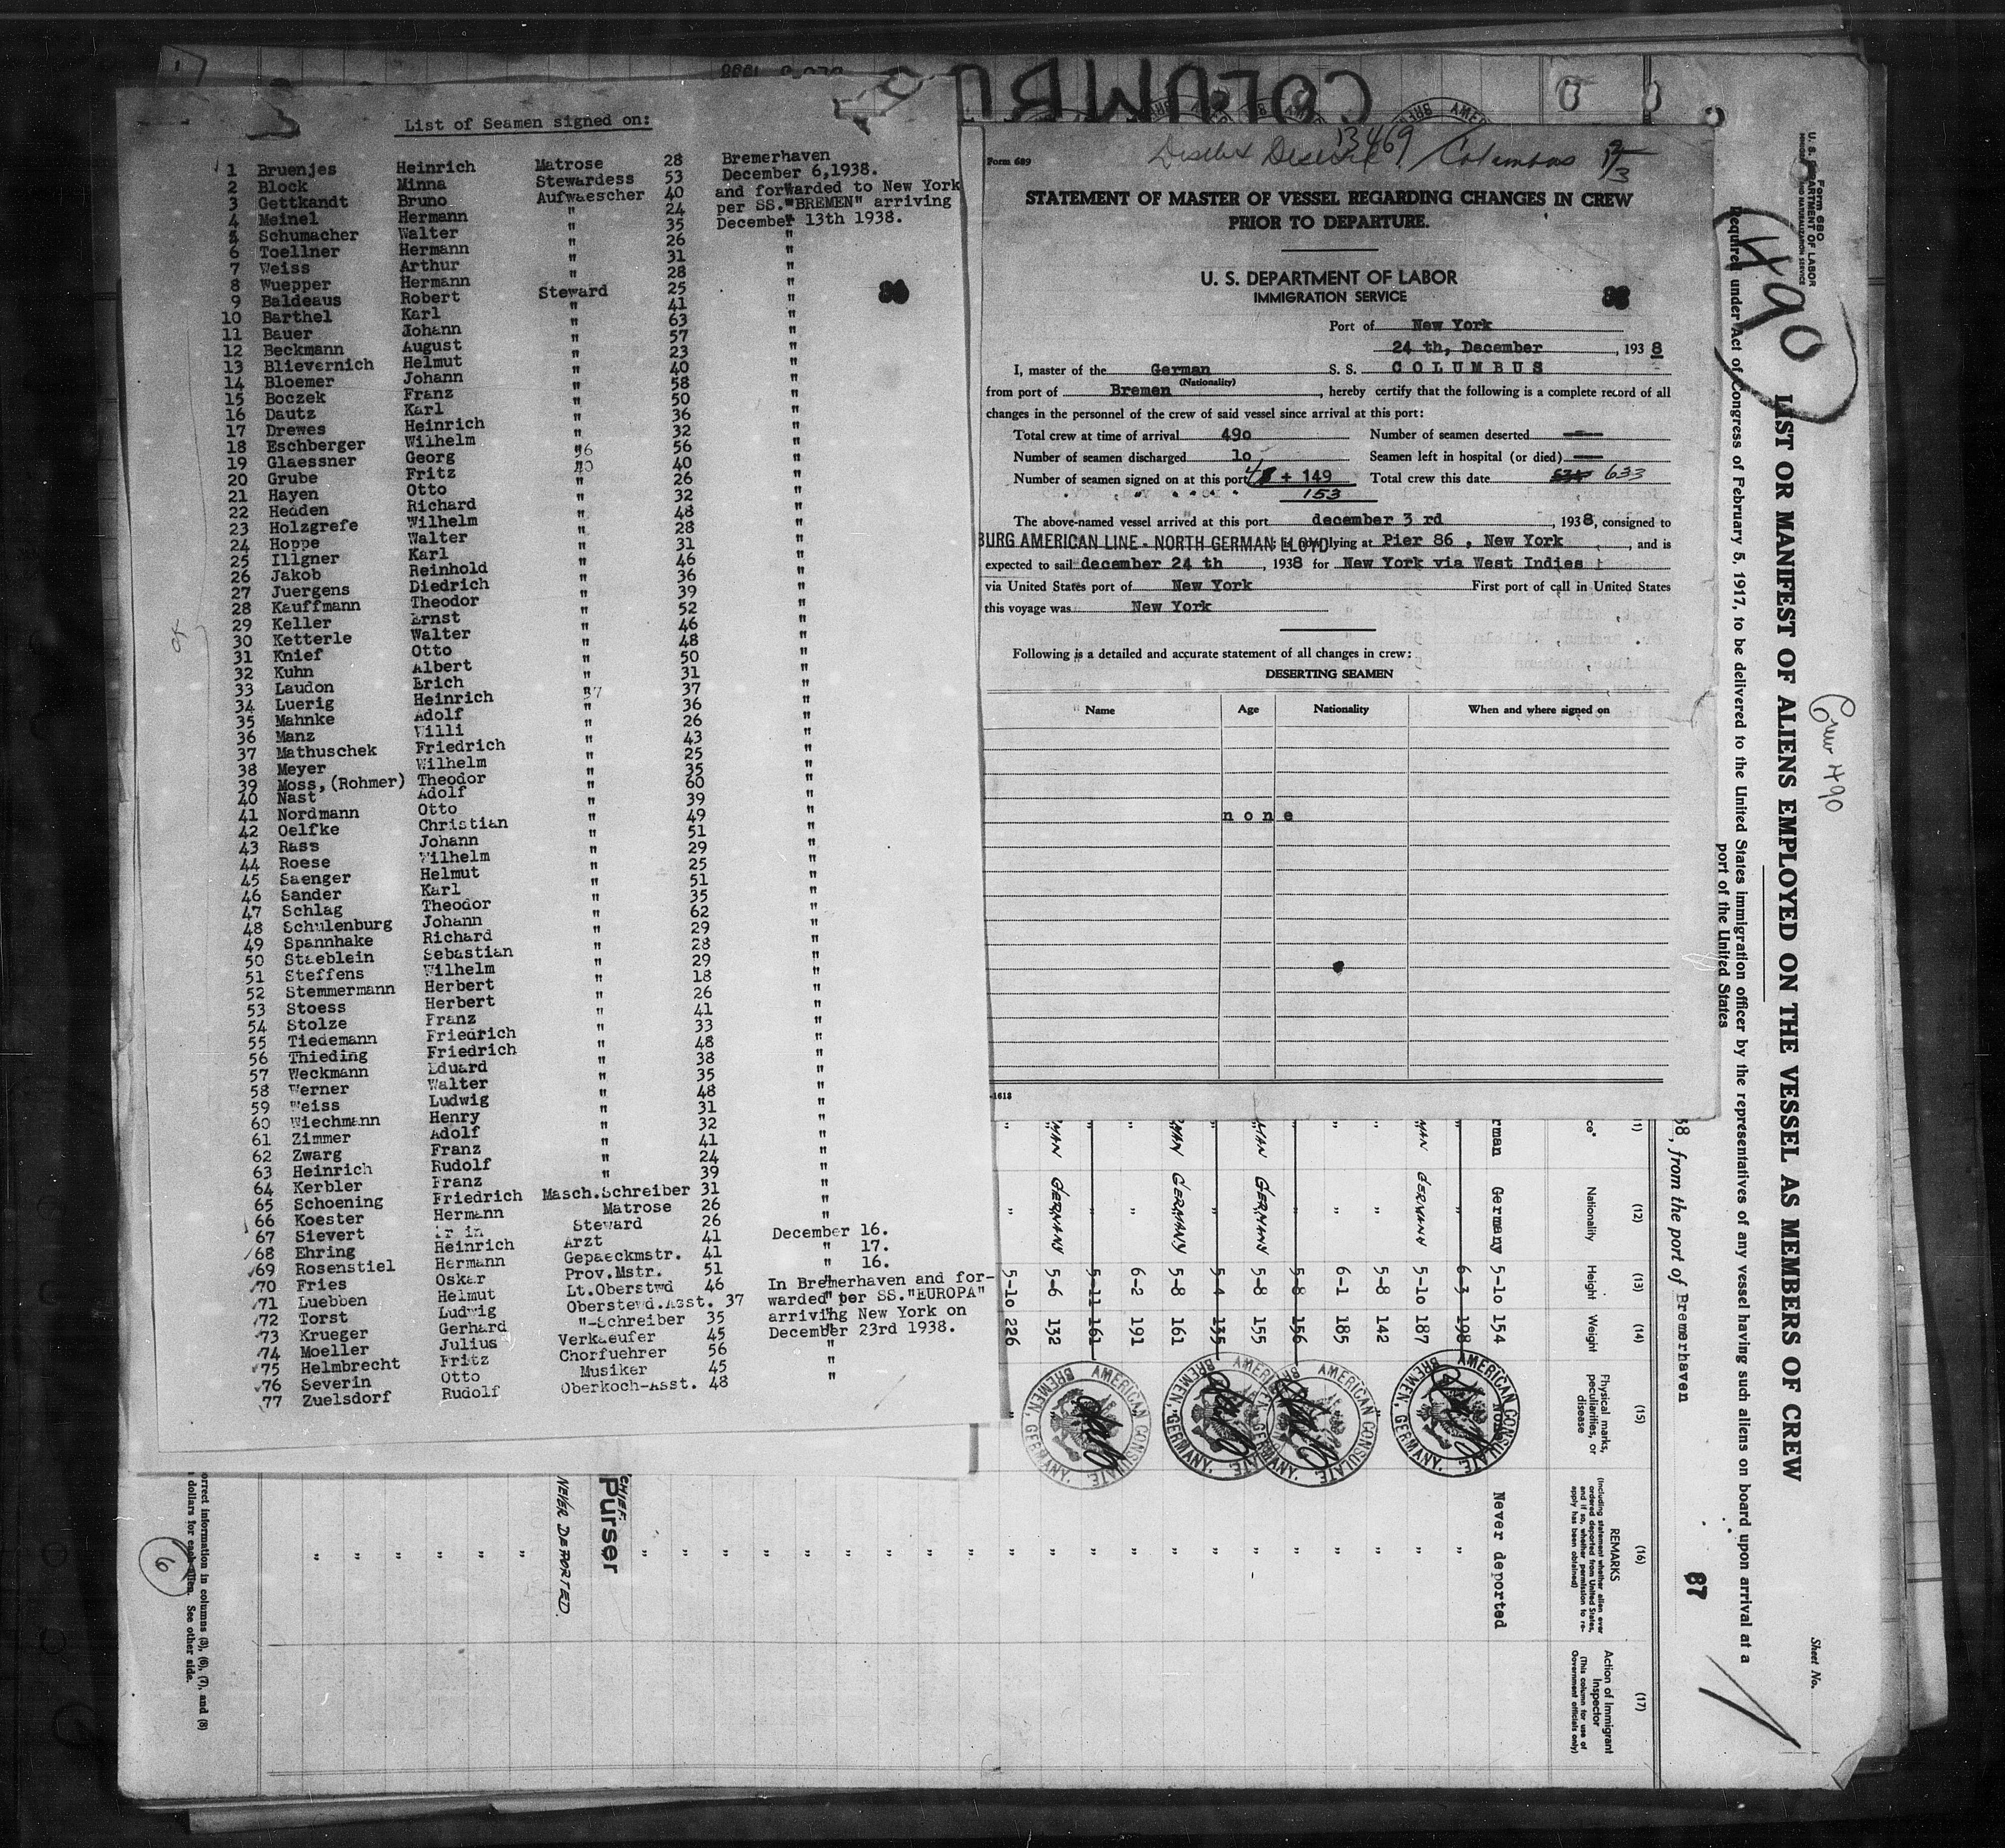 List of Seamen signed on:
1 Bruenjes Heinrich Matrose 28 Bremerhaven
2 Block Minna Stewardess 53 December 6,1938.
3 Gettkandt Bruno Aufwaescher 40 and forwarded to New York
4 Meinel Hermann " 24 per SS."BREMEN" arriving
5 Schumacher Walter " 35 December 13th 1938.
6 Toellner Hermann " 26 "
7 Weiss Arthur " 31 "
8 Wuepper Hermann " 28 "
9 Baldeaus Robert Steward 25 "
10 Barthel Karl " 41 "
11 Bauer Johann " 63 "
12 Beckmann August " 57 "
13 Blievernich Helmut " 23 "
14 Bloemer Johann " 40 "
15 Boczek Franz " 58 "
16 Dautz Karl " 50 "
17 Drewes Heinrich " 36 "
18 Eschberger Wilhelm " 32 "
19 Glaessner Georg " 56 "
20 Grube Fritz " 40 "
21 Hayen Otto " 26 "
22 Hedden Richard " 32 "
23 Holzgrefe Wilhelm " 48 "
24 Hoppe Walter " 28 "
25 Illgner Karl " 31 "
26 Jakob Reinhold " 46 "
27 Juergens Diedrich " 36 "
28 Kauffmann Theodor " 39 "
29 Keller Ernst " 52 "
30 Ketterle Walter " 46 "
31 Knief Otto " 48 "
32 Kuhn Albert " 50 "
33 Laudon Erich " 31 "
34 Luerig Heinrich " 37 "
35 Mahnke Adolf " 36 "
36 Manz Willi " 26 "
37 Mathuschek Friedrich " 43 "
38 Meyer Wilhelm " 25 "
39 Moss, (Rohmer) Theodor " 35 "
40 Nast Adolf " 60 "
41 Nordmann Otto " 39 "
42 Oelfke Christian " 49 "
43 Rass Johann " 51 "
44 Roese Wilhelm " 29 "
45 Saenger Helmut " 25 "
46 Sander Karl " 51 "
47 Schlag Theodor " 35 "
48 Schulenburg Johann " 62 "
49 Spannhake Richard " 29 "
50 Staeblein Sebastian " 28 "
51 Steffens Wilhelm " 29 "
52 Stemmermann Herbert " 18 "
53 Stoess Herbert " 26 "
54 Stolze Franz " 41 "
55 Tiedemann Friedrich " 33 "
56 Thieding Friedrich " 48 "
57 Weckmann Eduard " 38 "
58 Werner Walter " 35 "
59 Weiss Ludwig " 48 "
60 Wiechmann Henry " 31 "
61 Zimmer Adolf " 32 "
62 Zwarg Franz " 41 "
63 Heinrich Rudolf " 24 "
64 Kerbler Franz " 39 "
65 Schoening Friedrich Masch.Schreiber 31 "
66 Koester Hermann Matrose 26 "
67 Sievert Steward 26 December 16.
68 Ehring Heinrich Arzt 41 " 17.
69 Rosenstiel Hermann Gepaeckmstr. 41 " 16.
70 Fries Oskar Prov.Mstr. 51 In Bremerhaven and for-
71 Luebben Helmut Lt.Oberstwd 46 warded per SS."EUROPA"
72 Torst Ludwig Oberstewd.Asst. 37 arriving New York on
73 Krueger Gerhard "-Schreiber 35 December 23rd 1938.
74 Moeller Julius Verkaeufer 45 "
75 Helmbrecht Fritz Chorfuehrer 56 "
76 Severin Otto Musiker 45 "
77 Zuelsdorf Rudolf Oberkoch-Asst. 48
COLUMBU
Form 689
13469 / Columbus 12/3
STATEMENT OF MASTER OF VESSEL REGARDING CHANGES IN CREW
PRIOR TO DEPARTURE.
U. S. DEPARTMENT OF LABOR
IMMIGRATION SERVICE
Port of New York
24 th, December, 1938
I, master of the German S. S. COLUMBUS
(Nationality)
from port of Bremen, hereby certify that the following is a complete record of all
changes in the personnel of the crew of said vessel since arrival at this port:
Total crew at time of arrival 490 Number of seamen deserted —
Number of seamen discharged 10 Seamen left in hospital (or died) —
Number of seamen signed on at this port 4 + 149 Total crew this date 633
153
The above-named vessel arrived at this port december 3 rd, 1938, consigned to
BURG AMERICAN LINE - NORTH GERMAN LLOYD lying at Pier 86, New York, and is
expected to sail december 24 th, 1938 for New York via West Indies
via United States port of New York First port of call in United States
this voyage was New York
Following is a detailed and accurate statement of all changes in crew:
DESERTING SEAMEN
Name Age Nationality When and where signed on
none
-1618
Form 680
U. S. DEPARTMENT OF LABOR
490
Crew 490
Sheet No.
LIST OR MANIFEST OF ALIENS EMPLOYED ON THE VESSEL AS MEMBERS OF CREW
Required under Act of Congress of February 5, 1917, to be delivered to the United States immigration officer by the representatives of any vessel having such aliens on board upon arrival at a
port of the United States
38, from the port of Bremerhaven
87
(12) Nationality
(13) Height
(14) Weight
(15) Physical marks, peculiarities, or disease
(16) REMARKS
(Including statement whether alien ever ordered deported from United States, and if so, whether permission to reapply has been obtained)
(17) Action of Immigrant Inspector
(This column for use of Government officials only)
rman Germany 5-10 154 None Never deported
" " 6-3 198 "
MAN GERMANY 5-10 187 "
" " 5-8 142 "
" " 6-1 185 "
5-8 156 "
MAN GERMANY 5-8 155 "
5-4 135 "
MAN GERMANY 5-8 161 "
" " 6-2 191 "
5-11 161 "
MAN GERMANY 5-6 132 "
" " 5-10 226 "
AMERICAN CONSULATE BREMEN, GERMANY.
AMERICAN CONSULATE BREMEN, GERMANY.
AMERICAN CONSULATE BREMEN, GERMANY.
AMERICAN CONSULATE BREMEN, GERMANY.
CHIEF
Purser
NEVER DEPORTED.
orrect information in columns (3), (6), (7), and (8)
dollars for each alien. See other side.
6